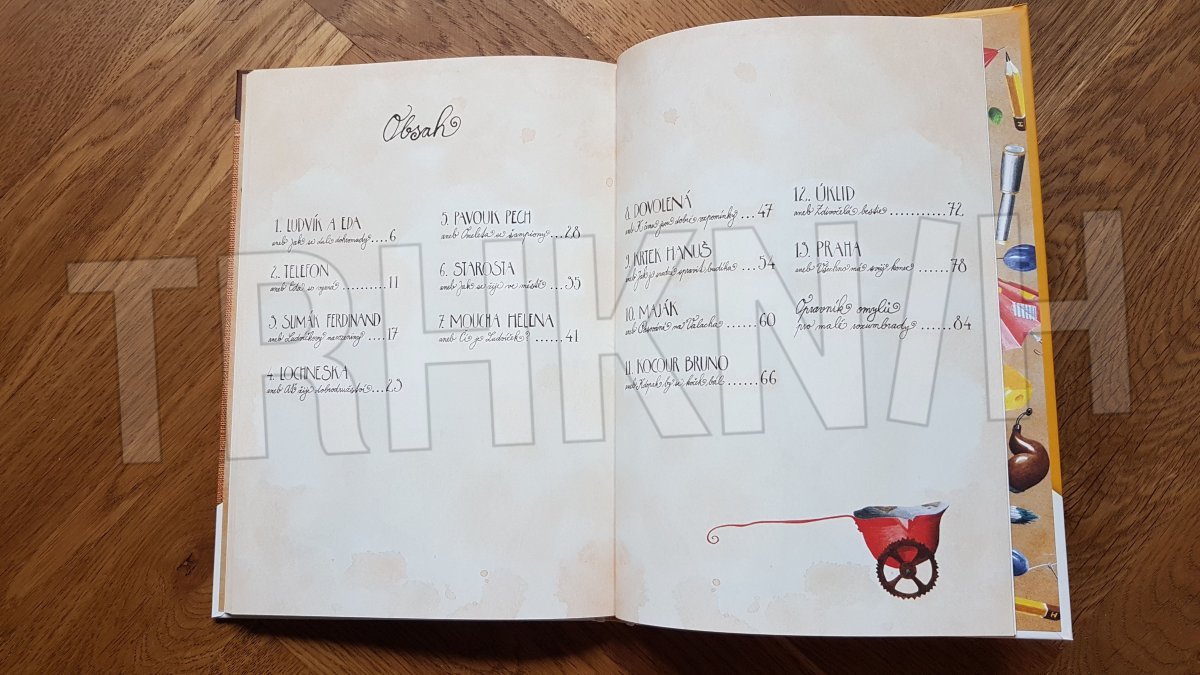 Obsah
1. LUDVÍK A EDA
aneb Jak se dali dohromady ....6
2. TELEFON
aneb Eda to vyhrál ..........11
3. SUMÁK FERDINAND
aneb Ludvíkovy narozeniny ....17
4. LOCHNESKA
aneb Ať žije dobrodružství ...23
5. PAVOUK PECH
aneb Omeleta se šampiony ...28
6. STAROSTA
aneb Jak se žije ve městě ...35
7. MOUCHA HELENA
aneb Čí je Ludvíček? ......41
8. DOVOLENÁ
aneb K čemu jsou dobré vzpomínky ...47
9. KRTEK HANUŠ
aneb Jak je snadné spravit budíka ...54
10. MAJÁK
aneb Objevování na Valacha ......60
11. KOCOUR BRUNO
aneb Kdepak by se koček bál ......66
12. ÚKLID
aneb Zdivočelá bestie ...........72
13. PRAHA
aneb Všechno má svůj konec ......78
Opravník omylů
pro malé rozumbrady .....84
TRHKNI/H